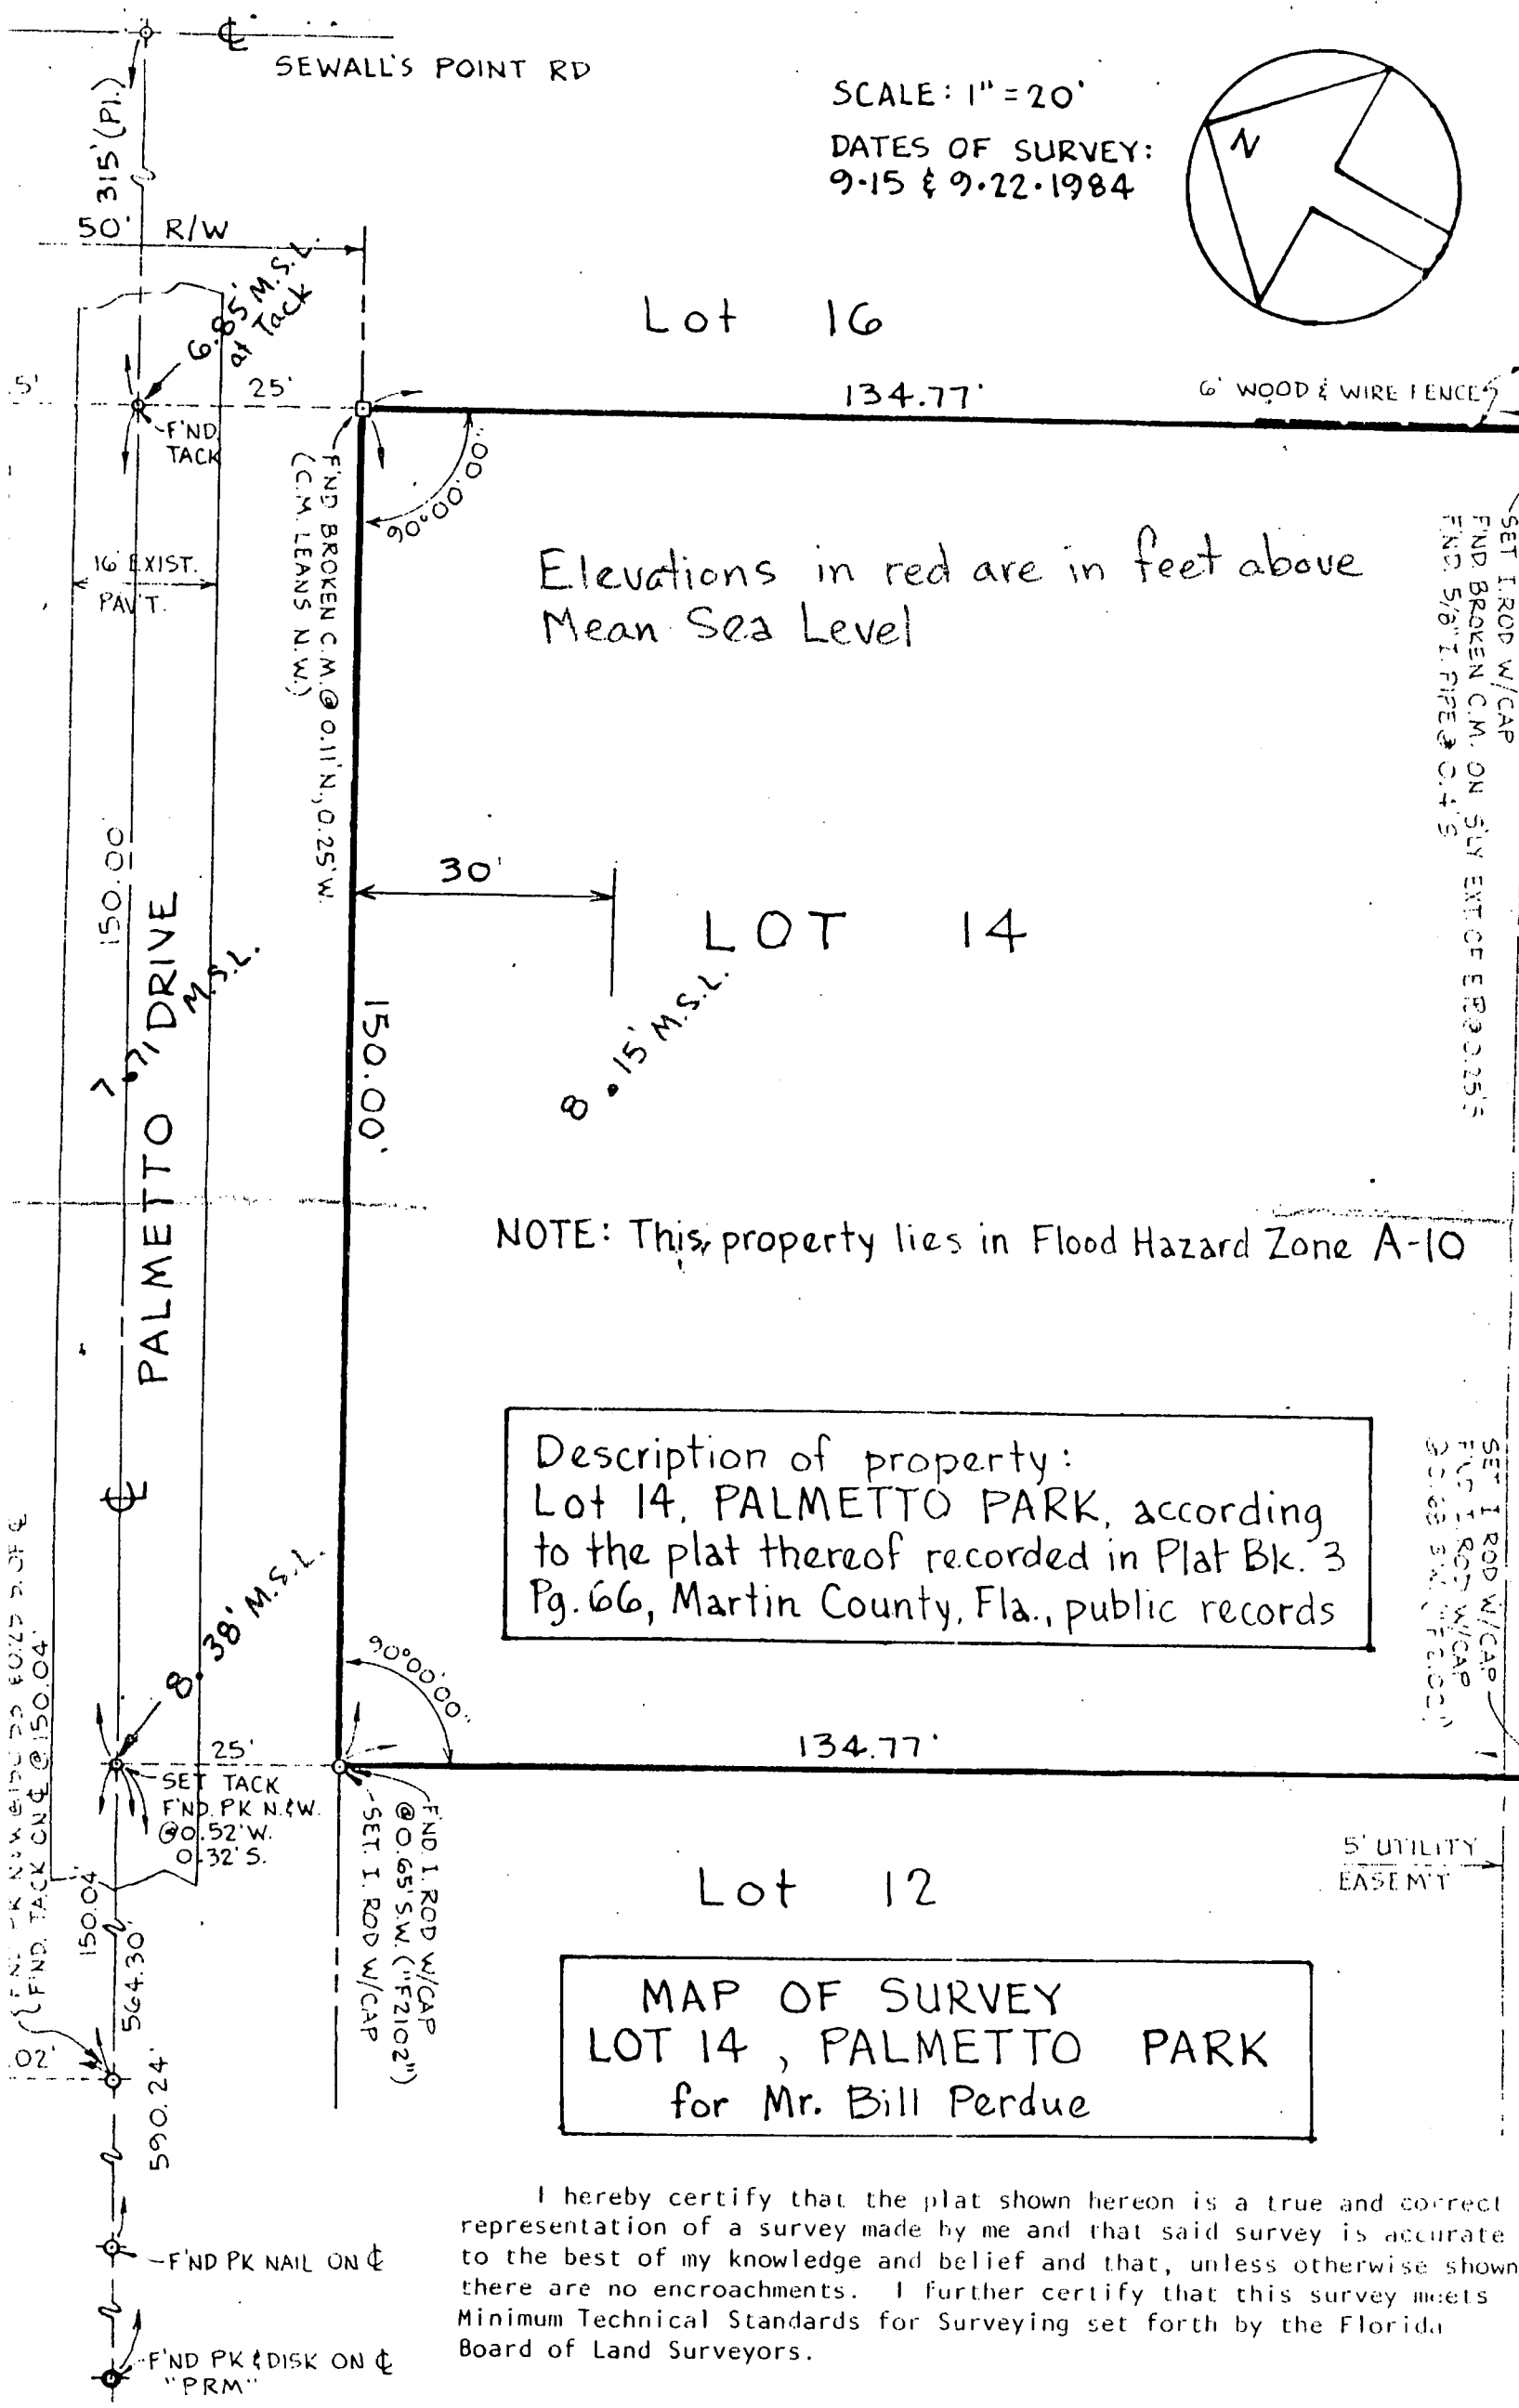 ℄
SEWALL'S POINT RD
315' (Pl.)
SCALE: 1" = 20'
DATES OF SURVEY:
9·15 & 9·22·1984
N
50' R/W
6.85' M.S.L.
at Tack
Lot 16
5'
25'
134.77'
6' WOOD & WIRE FENCES
F'ND
TACK
90°00'00"
FND BROKEN C.M. @ 0.11'N, 0.25'W.
(C.M. LEANS N.W.)
16' EXIST.
PAV'T.
Elevations in red are in feet above
Mean Sea Level
SET I. ROD W/CAP
FND BROKEN C.M. ON S'LY EXT. OF
FND. 5/8" I. PIPE @ 0.4' S
150.00'
30'
LOT 14
PALMETTO DRIVE
7.71 M.S.L.
150.00'
8.15' M.S.L.
NOTE: This property lies in Flood Hazard Zone A-10
Description of property:
Lot 14, PALMETTO PARK, according
to the plat thereof recorded in Plat Bk. 3
Pg. 66, Martin County, Fla., public records
℄
8.38' M.S.L.
90°00'00"
SET I ROD W/CAP
I. ROD W/CAP
25'
134.77'
SET TACK
F'ND. PK N.&W.
@0.52'W.
0.32'S.
FND. I. ROD W/CAP
@0.65'S.W. ("F2102")
SET I. ROD W/CAP
FIND. TACK ON ℄ @ 150.04'
5' UTILITY
EASEM'T
Lot 12
150.04'
564.30'
.02'
590.24'
MAP OF SURVEY
LOT 14, PALMETTO PARK
for Mr. Bill Perdue
I hereby certify that the plat shown hereon is a true and correct
representation of a survey made by me and that said survey is accurate
to the best of my knowledge and belief and that, unless otherwise shown
there are no encroachments. I further certify that this survey meets
Minimum Technical Standards for Surveying set forth by the Florida
Board of Land Surveyors.
F'ND PK NAIL ON ℄
F'ND PK & DISK ON ℄
"PRM"